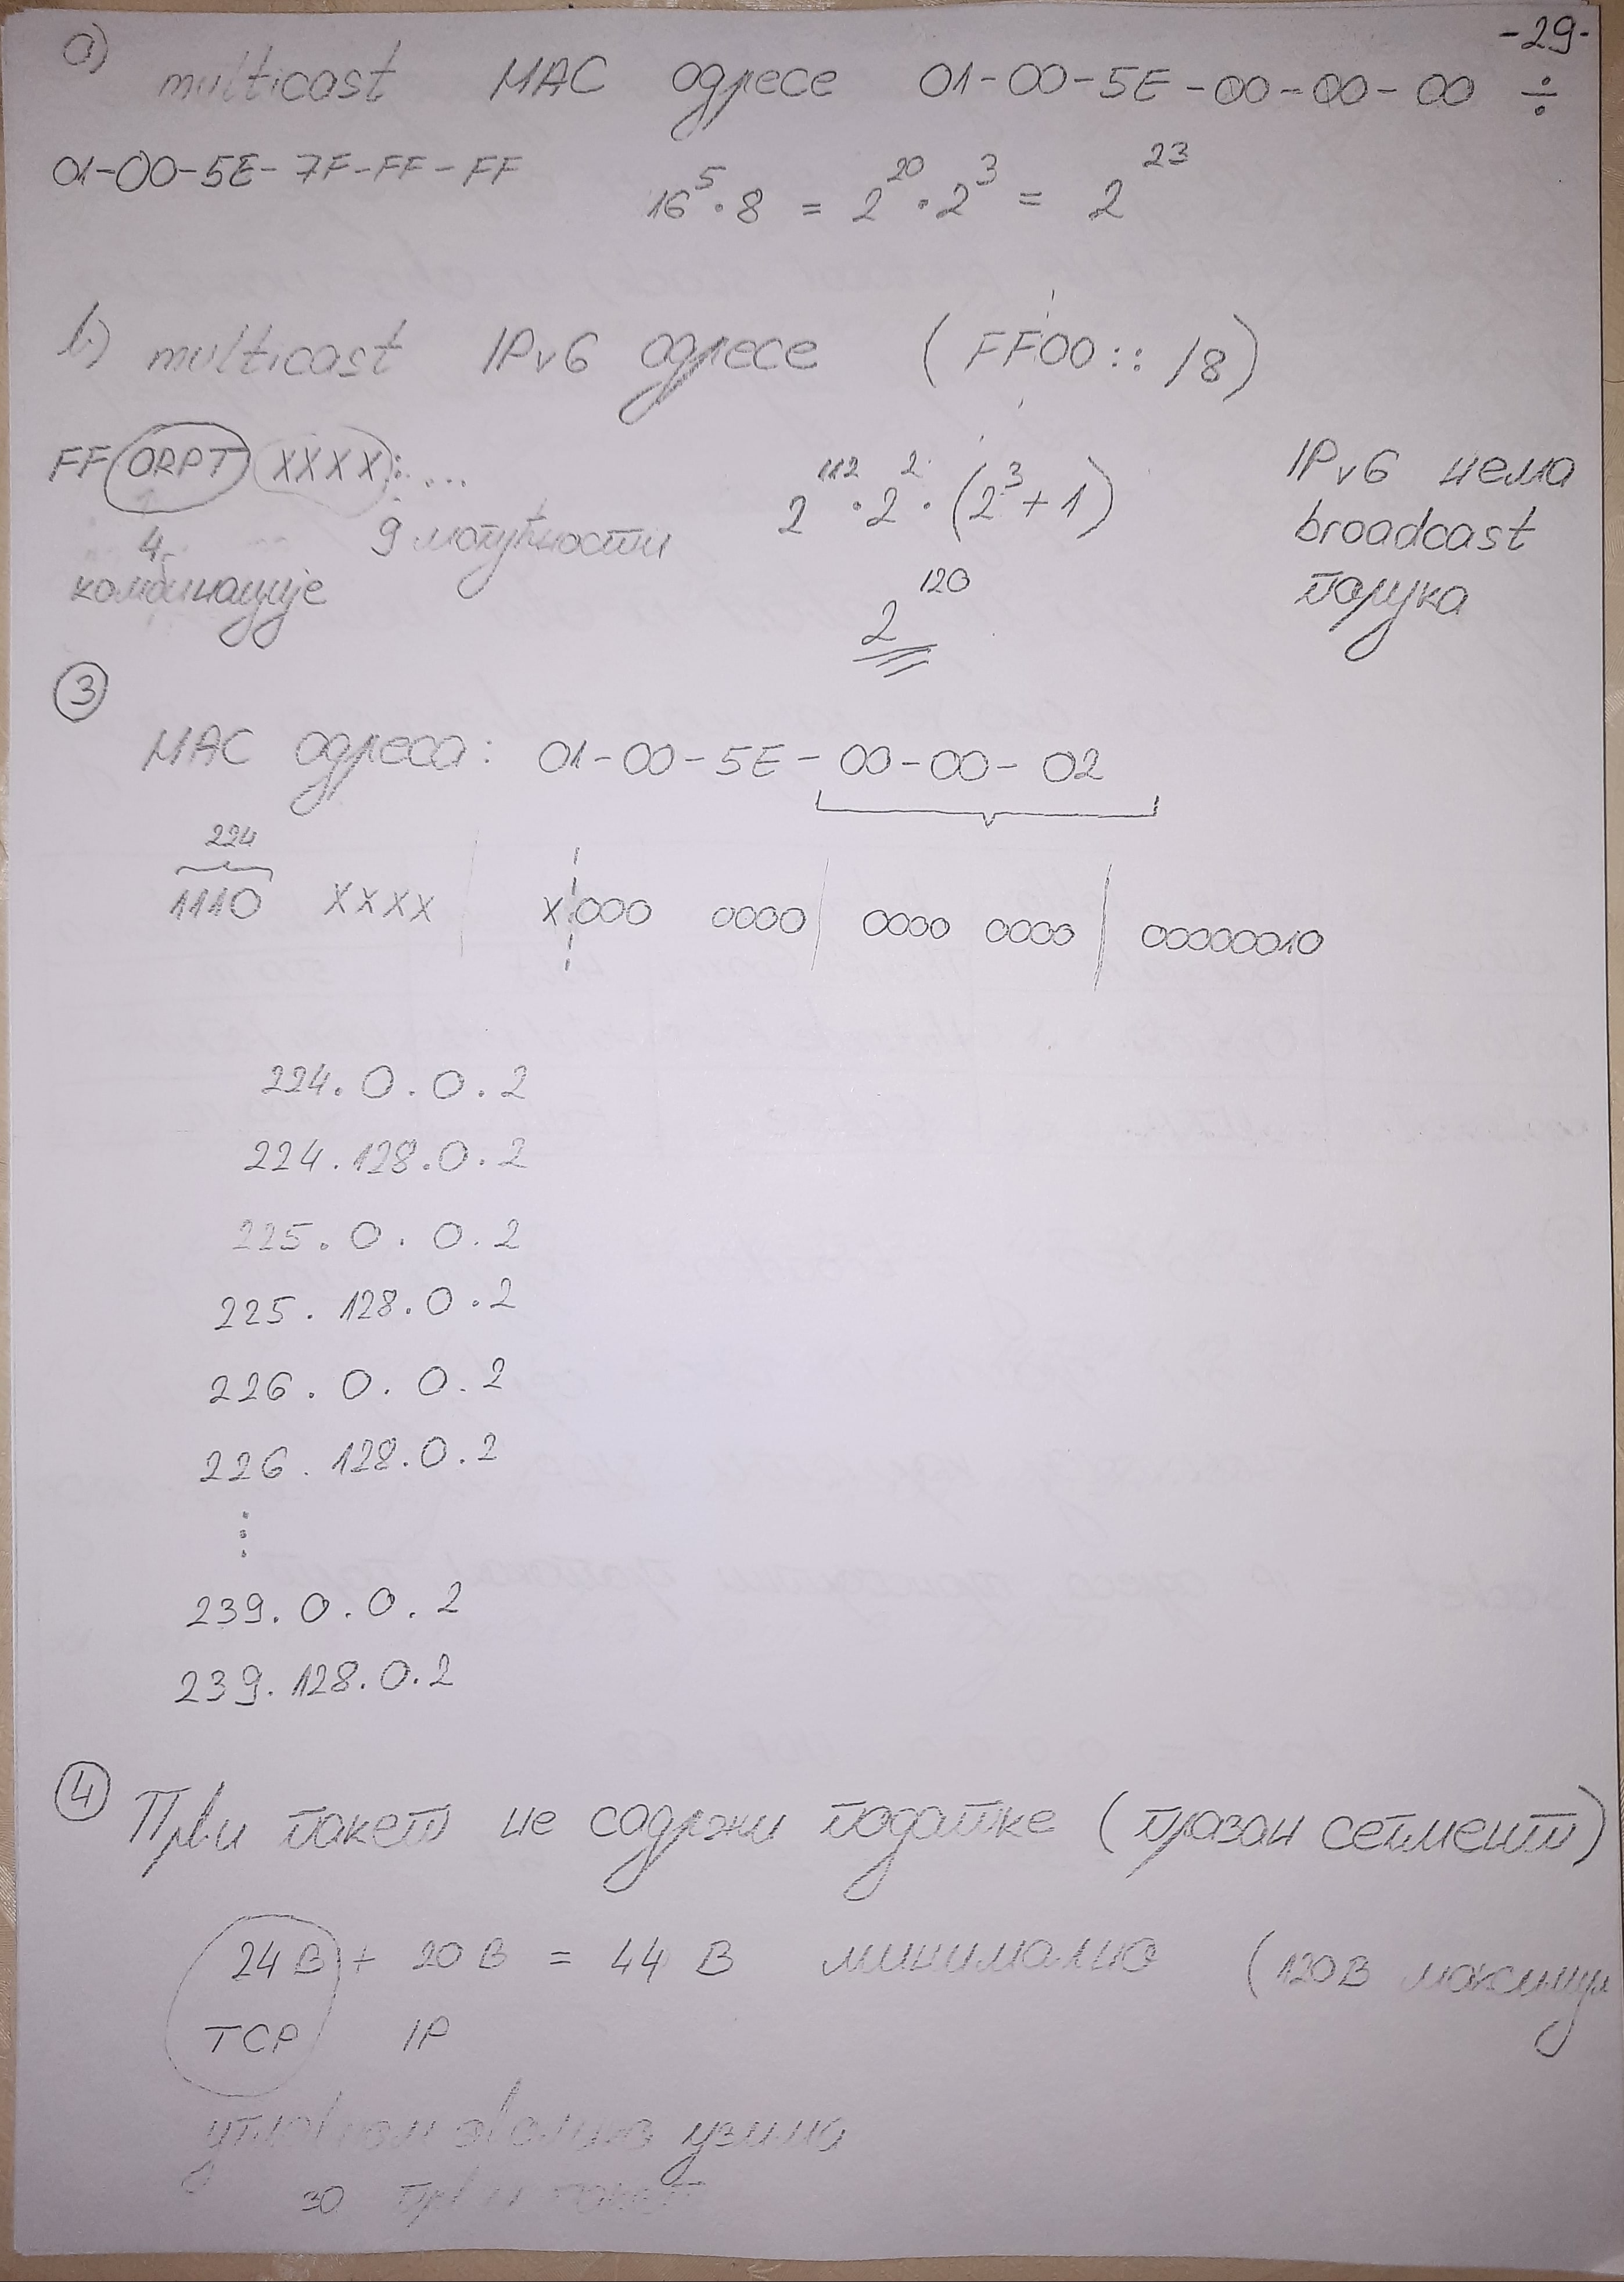 -29-
a) multicast MAC адресе 01-00-5E-00-00-00 ÷
01-00-5E-7F-FF-FF 16^5 · 8 = 2^20 · 2^3 = 2^23
b) multicast IPv6 адресе (FF00:: /8)
FF ORPT XXXX: ...
4 комбинације
9 могућности
2^112 · 2^2 · (2^3 + 1)
2^120
IPv6 нема
broadcast
порука
③
MAC адреса: 01-00-5E-00-00-02
224
1110 XXXX | X¦000 0000 | 0000 0000 | 00000010
224.0.0.2
224.128.0.2
225.0.0.2
225.128.0.2
226.0.0.2
226.128.0.2
⋮
239.0.0.2
239.128.0.2
④ Први пакет не садржи податке (празан сегмент)
24B + 20B = 44 B минимално (120B максимум
TCP IP
углавном узима
за први пакет